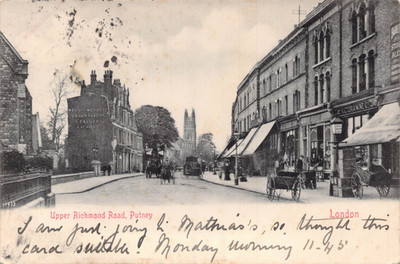 Upper Richmond Road, Putney
London
I am just going to Mathias's, so thought this
card suitable. Monday Morning 11-45